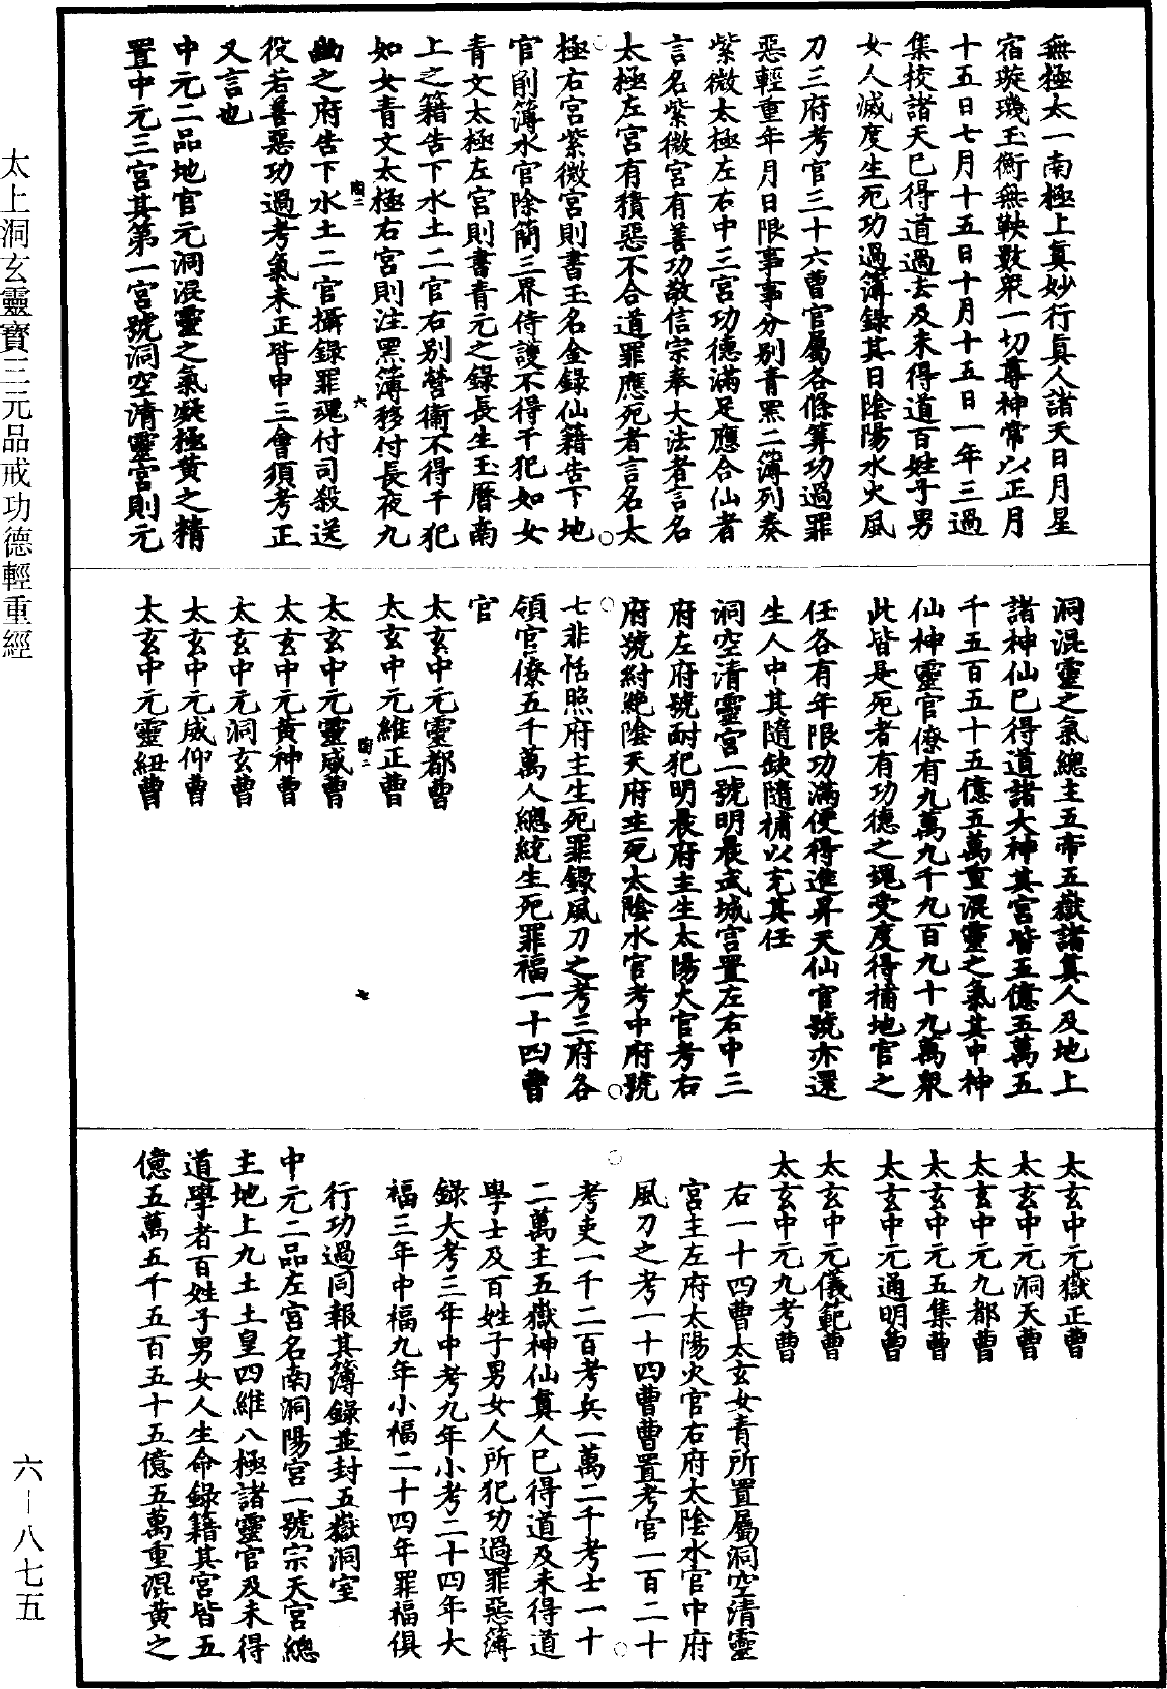 太上洞玄靈寶三元品戒功德輕重經
無極太一南極上真妙行真人諸天日月星
宿璇璣玉衡無鞅數眾一切尊神常以正月
十五日七月十五日十月十五日一年三過
集校諸天已得道過去及未得道百姓子男
女人滅度生死功過簿錄其日陰陽水火風
刀三府考官三十六曹官屬各條筭功過罪
惡輕重年月日限事事分別青黑二簿列奏
紫微太極左右中三宮功德滿足應合仙者
言名紫微宮有善功敬信宗奉大法者言名
太極左宮有積惡不合道罪應死者言名太
極右宮紫微宮則書玉名金錄仙籍告下地
官削簿水官除簡三界侍護不得干犯如女
青文太極左宮則書青元之錄長生玉曆南
上之籍告下水土二官右別營衛不得干犯
如女青文太極右宮則注黑簿移付長夜九
陶二
六
幽之府告下水土二官攝錄罪魂付司殺送
役若善惡功過考氣未正皆申三會須考正
又言也
中元二品地官元洞混靈之氣凝極黃之精
置中元三宮其第一宮號洞空清靈宮則元
洞混靈之氣總主五帝五嶽諸真人及地上
諸神仙已得道諸大神其宮皆五億五萬五
千五百五十五億五萬重混靈之氣其中神
仙神靈官僚有九萬九千九百九十九萬眾
此皆是死者有功德之魂受度得補地官之
任各有年限功滿便得進昇天仙官號亦還
生人中其隨缺隨補以充其任
洞空清靈宮一號明晨武城宮置左右中三
府左府號酎犯明晨府主生太陽火官考右
府號紂絕陰天府主死太陰水官考中府號
七非恬照府主生死罪錄風刀之考三府各
領官僚五千萬人總統生死罪福一十四曹
官
太玄中元靈都曹
太玄中元維正曹
陶二
七
太玄中元靈威曹
太玄中元黃神曹
太玄中元洞玄曹
太玄中元威仰曹
太玄中元靈紐曹
太玄中元嶽正曹
太玄中元洞天曹
太玄中元九都曹
太玄中元五集曹
太玄中元通明曹
太玄中元儀範曹
太玄中元九考曹
右一十四曹太玄女青所置屬洞空清靈
宮主左府太陽火官右府太陰水官中府
風刀之考一十四曹曹置考官一百二十
考吏一千二百考兵一萬二千考士一十
二萬主五嶽神仙真人已得道及未得道
學士及百姓子男女人所犯功過罪惡簿
錄大考三年中考九年小考二十四年大
福三年中福九年小福二十四年罪福俱
行功過同報其簿錄並封五嶽洞室
中元二品左宮名南洞陽宮一號宗天宮總
主地上九土土皇四維八極諸靈官及未得
道學者百姓子男女人生命錄籍其宮皆五
億五萬五千五百五十五億五萬重混黃之
六－八七五